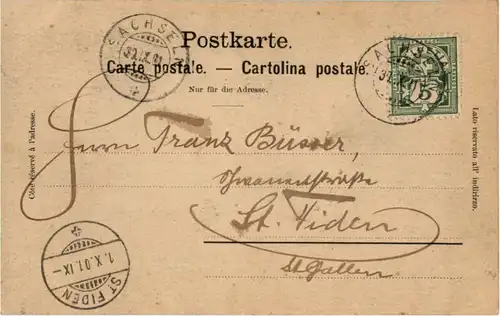 Postkarte.
Carte postale. — Cartolina postale.
Nur für die Adresse.
SACHSELN
30.IX.01
SACHSELN
5
Côté réservé à l'adresse.
Lato riservato all' indirizzo.
Herrn Franz Büsser,
St. Fiden
St. Gallen
ST FIDEN
1.X.01.IX